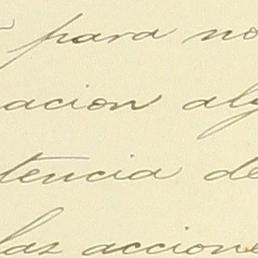 para no
acion alg
tencia de
las accione